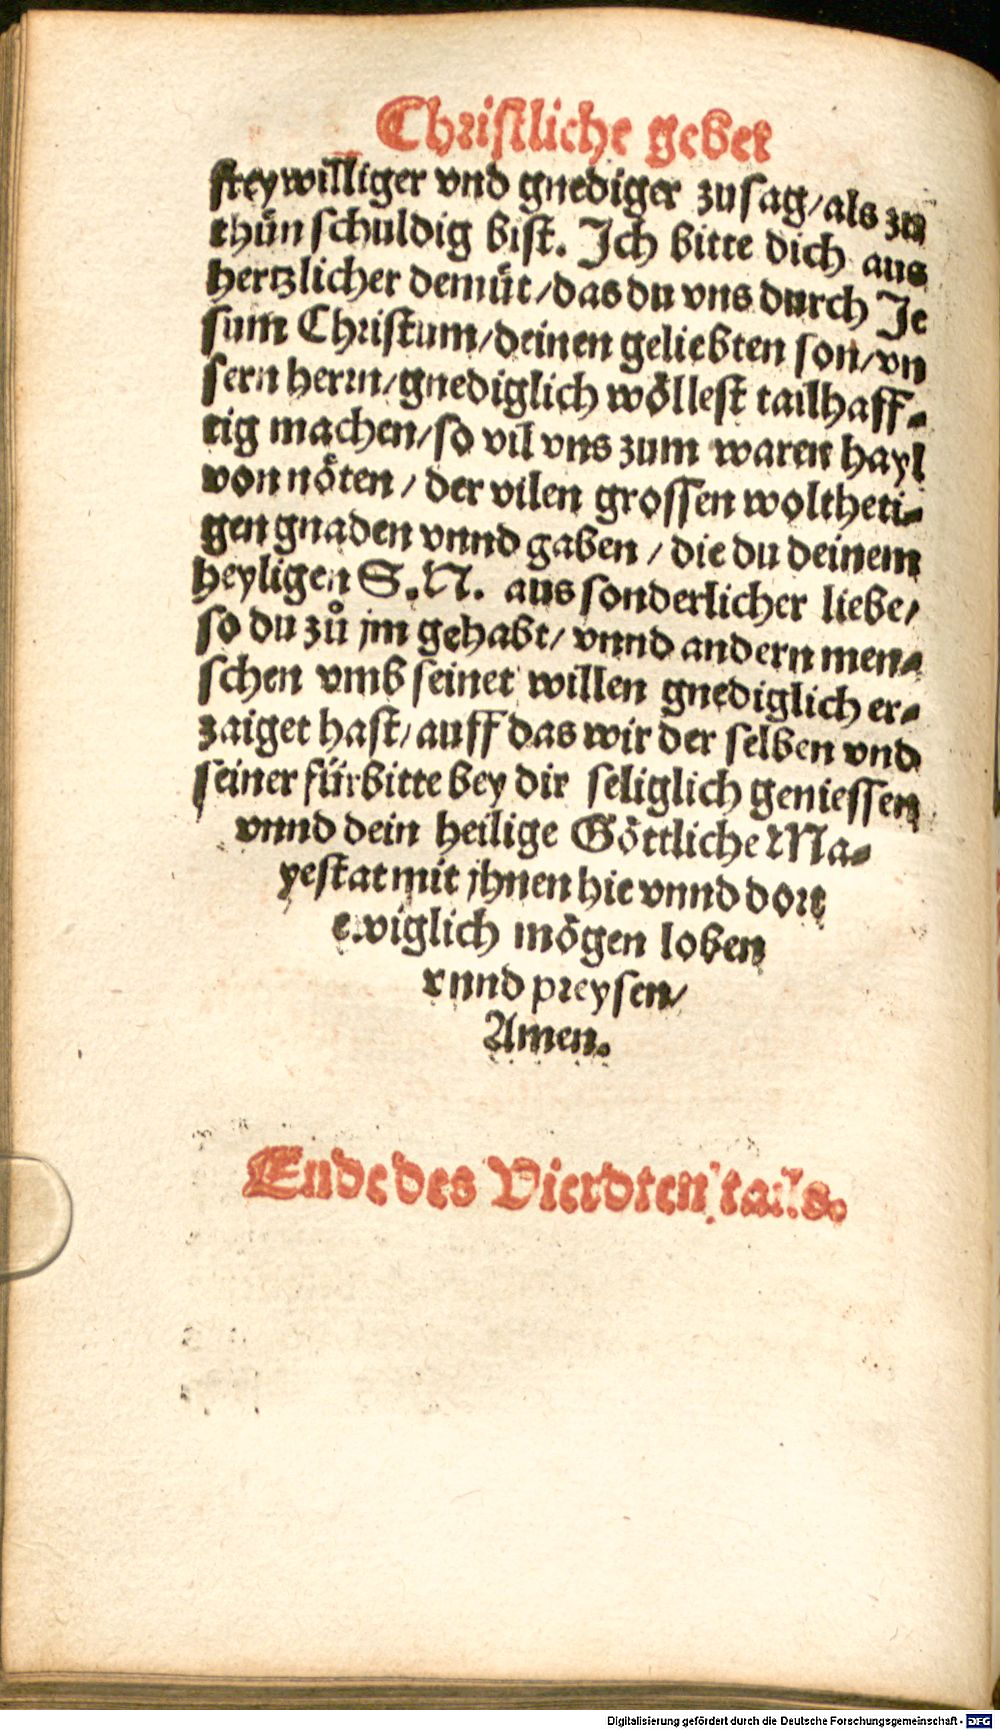 Christliche gebet
freywilliger vnd gnediger zusag/als zu
thůn schuldig bist. Ich bitte dich aus
hertzlicher demůt/das du vns durch Je
sum Christum/deinen geliebten son/vn
sern herrn/gnediglich wöllest tailhaff-
tig machen/so vil vns zum waren hayl
von nöten/ der vilen grossen woltheti-
gen gnaden vnnd gaben / die du deinem
heyligen S. N. aus sonderlicher liebe/
so du zů jm gehabt/ vnnd andern men-
schen vmb seinet willen gnediglich er-
zaiget hast/auff das wir der selben vnd
seiner fürbitte bey dir seliglich geniessen
vnnd dein heilige Göttliche Ma-
yestat mit jhnen hie vnnd dort
ewiglich mögen loben
vnnd preysen/
Amen.
Ende des Vierdten tails.
Digitalisierung gefördert durch die Deutsche Forschungsgemeinschaft - DFG